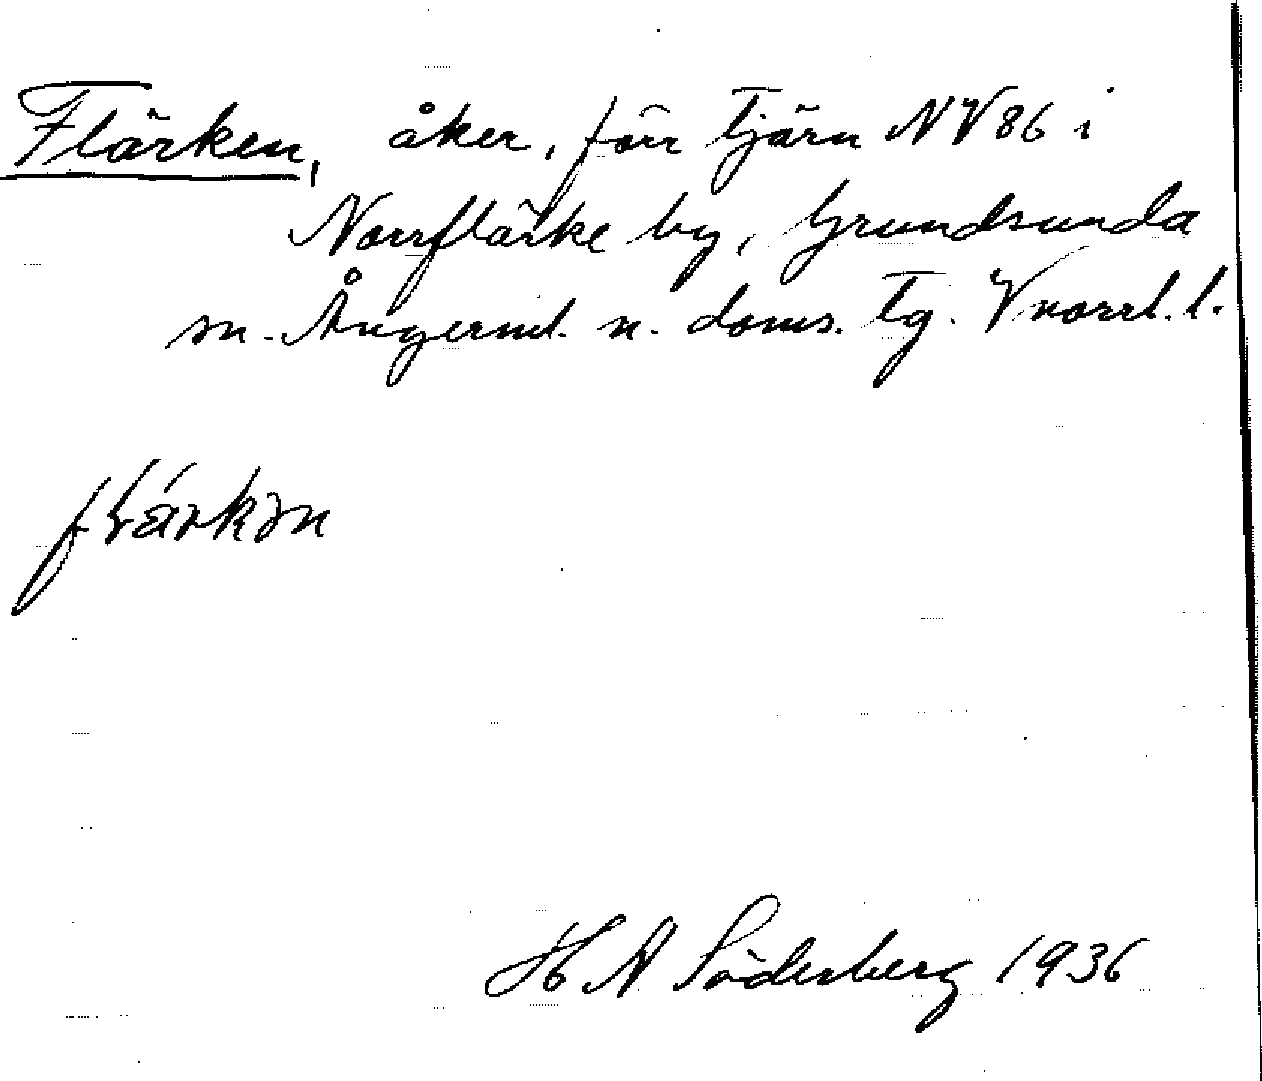 Flärken, åker, förr Tjärn NV 86 i
Norrflärke by, Grundsunda
sn. Ångerml. n. doms. tg. Vnorrl. l.
H A Söderberg 1936